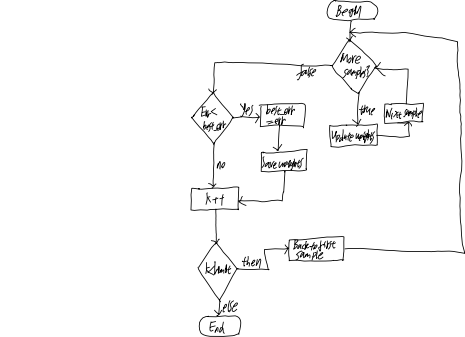 Begin
More
samples?
false
true
Next sample
Update weights
Err<
best_err
yes
best_err
=err
no
Save weights
k++
k<limit
then
Back to first
sample
else
End